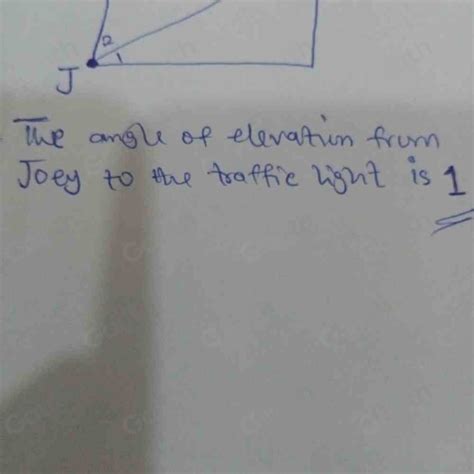 2
1
J
The angle of elevation from
Joey to the traffic light is 1